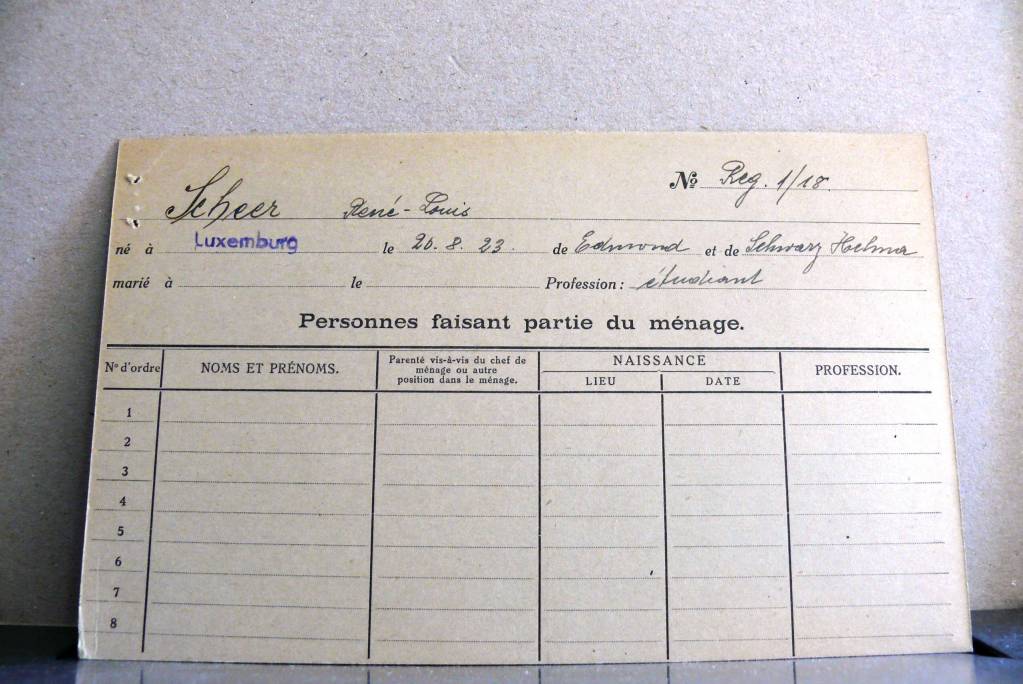 No Reg. 1/18.
Scheer René-Louis
né à Luxemburg le 20. 8. 23. de Edmond et de Schwarz Helma
marié à le Profession: étudiant
Personnes faisant partie du ménage.
No d'ordre NOMS ET PRÉNOMS. Parenté vis-à-vis du chef de ménage ou autre position dans le ménage. NAISSANCE PROFESSION.
LIEU DATE
1
2
3
4
5
6
7
8